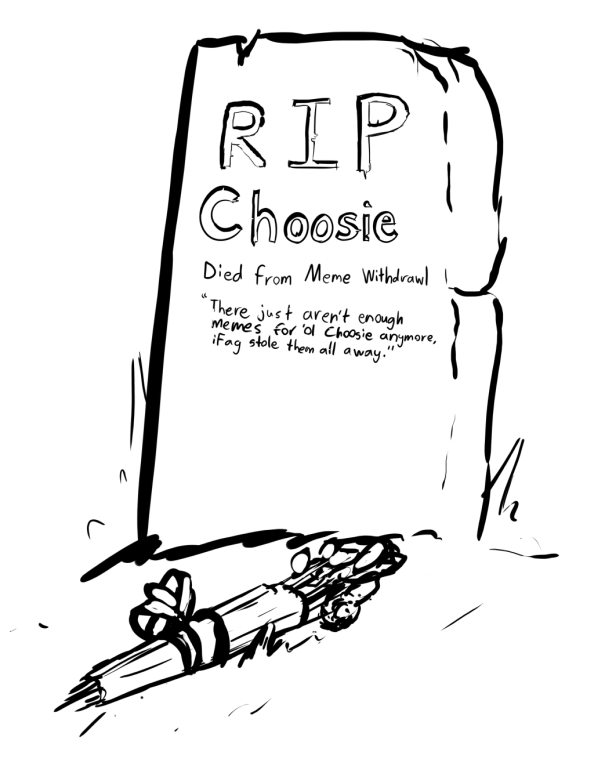 RIP
Choosie
Died from Meme Withdrawl
"There just aren't enough
memes for 'ol Choosie anymore,
iFag stole them all away."